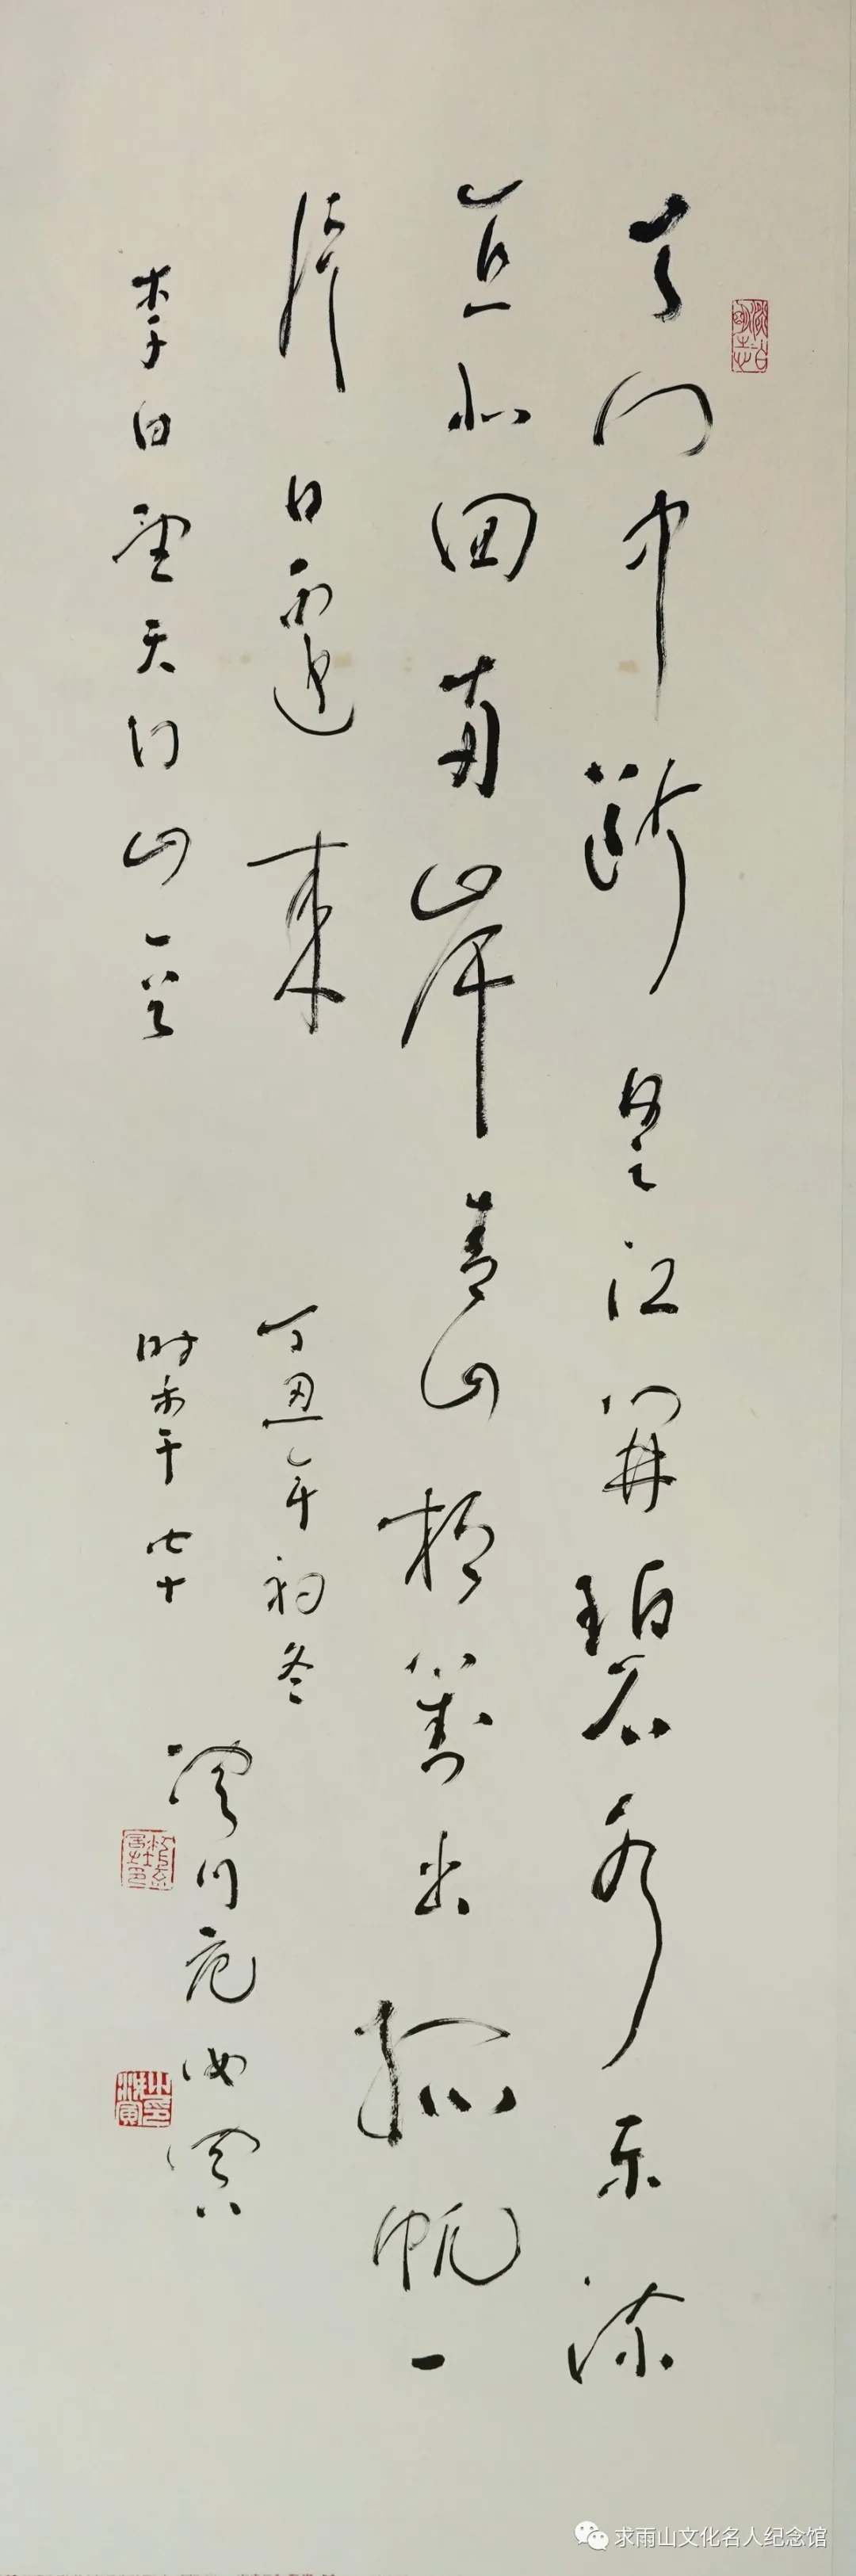 天門中斷楚江開碧水东流
直北回兩岸青山相對出孤帆一
片日邊來
李白望天门山一首
丁丑年初冬
时年七十
求雨山文化名人纪念馆